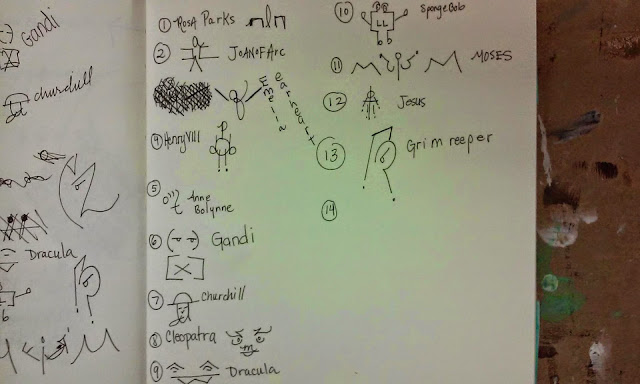 Gandi
Churchill
Dracula
① Rosa Parks
② JOANOFARC
Emelia
earheart
④ Henry VIII
⑤ Anne
Bolynne
⑥ Gandi
⑦ Churchill
⑧ Cleopatra
⑨ Dracula
⑩ SpongeBob
⑪ MOSES
⑫ Jesus
⑬ Grim reeper
⑭